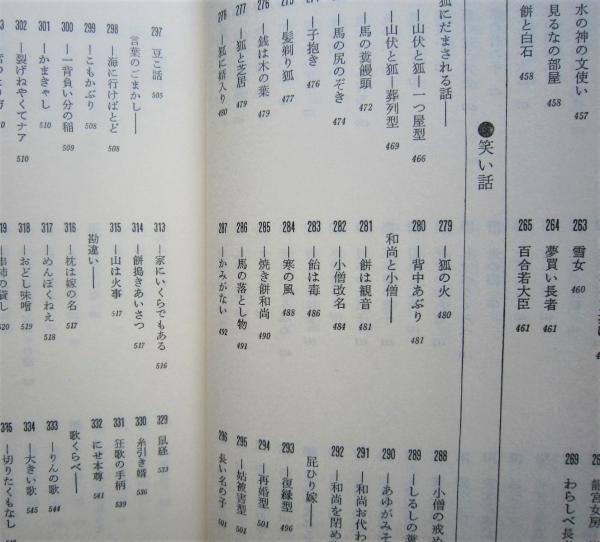 水の神の文使い 457
見るなの部屋 458
餅と白石 458
263 雪女 460
264 夢買い長者 461
265 百合若大臣 461
龍宮女房
269 わらしべ長
笑い話
狐にだまされる話――
―山伏と狐―一つ屋型 466
―山伏と狐―葬列型 469
―馬の糞饅頭 472
―馬の尻のぞき 474
―子抱き 476
275 ―髪剃り狐 477
276 ―銭は木の葉 479
277 ―狐と芝居 479
278 ―狐に婿入り 480
279 ―狐の火 480
280 ―背中あぶり 481
和尚と小僧――
281 ―餅は観音 481
282 ―小僧改名 484
283 ―飴は毒 486
284 ―寒の風 488
285 ―焼き餅和尚 490
286 ―馬の落とし物 491
287 ―かみがない 492
288 ―小僧の戒め
289 ―しるしの糞
290 ―あゆがみそ
291 ―和尚お代わ
292 ―和尚を閉め
屁ひり嫁――
293 ―復縁型 496
294 ―再婚型 501
295 ―姑被害型 501
296 長い名の子 501
297 豆こ話 505
言葉のごまかし――
298 ―海に行けばとど 508
299 ―こもかぶり 508
300 ―一背負い分の稲 509
301 ―かまきゃし 510
302 ―裂げねやくてナア 510
313 ―家にいくらでもある 516
314 ―餅搗きあいさつ 517
315 ―山は火事 517
勘違い――
316 ―枕は嫁の名 517
317 ―めんぼくねえ 518
318 ―おどし味噌 519
319 ―串柿の貸し 520
329 鼠経 533
330 糸引き婿 536
331 狂歌の手柄 539
332 にせ本尊 541
歌くらべ――
333 ―りんの歌 544
334 ―大きい歌 545
335 ―切りたくもなし